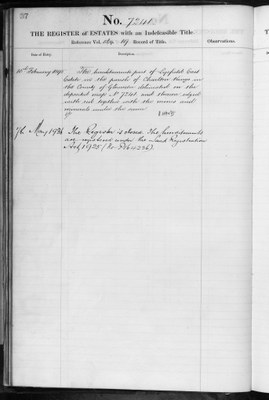 37
No. 7241
THE REGISTER of ESTATES with an Indefeasible Title.
Reference Vol. Record of Title.
Date of Entry. Description. Observations.
February The hereditaments part of Lyefield Court
Estate in the parish of Charlton Kings in
the County of Gloucester delineated on the
deposited map Nº 7241 and thereon edged
with red together with the mines and
minerals under the same
7th May 1936 The Register is closed. The hereditaments
are registered under the Land Registration
Act, 1925